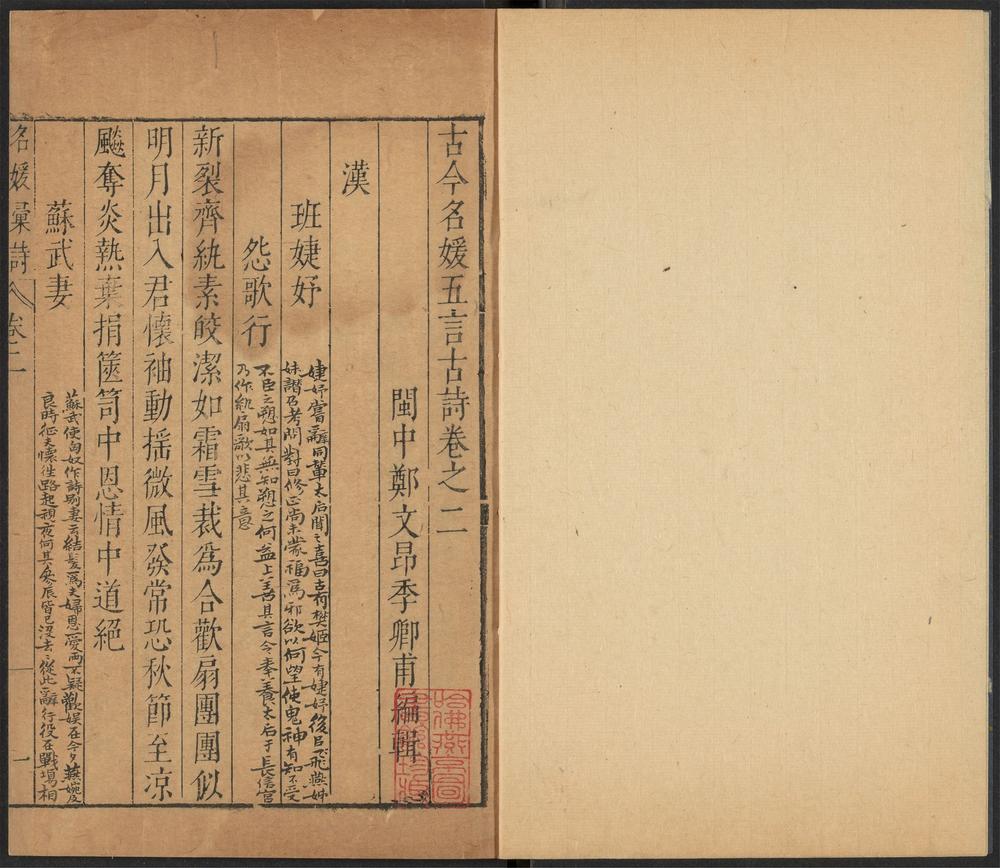 古今名媛五言古詩卷之二
閩中鄭文昂季卿甫編輯
漢
班婕妤
婕妤嘗辭同輦太后聞之喜曰古有樊姬今有婕妤後呂飛燕姊
妹譖乃考問對曰修正尚未蒙福為邪欲以何望使鬼神有知不受
不臣之愬如其無知愬之何益上善其言令奉養太后于長信宮
乃作紈扇歌以悲其意
怨歌行
新裂齊紈素皎潔如霜雪裁為合歡扇團團似
明月出入君懷袖動搖微風發常恐秋節至凉
飈奪炎熱棄捐篋笥中恩情中道絕
蘇武妻
蘇武使匈奴作詩別妻云結髪為夫婦恩愛兩不疑歡娱在今夕燕婉及
良時征夫懷徃路起視夜何其參辰皆已沒去去從此辭行役在戰場相
名媛彙詩
卷二
一